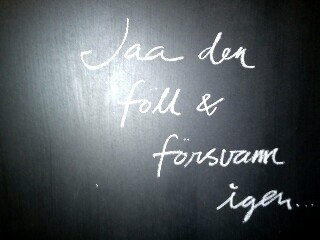 Jaa den
föll &
försvann
igen...